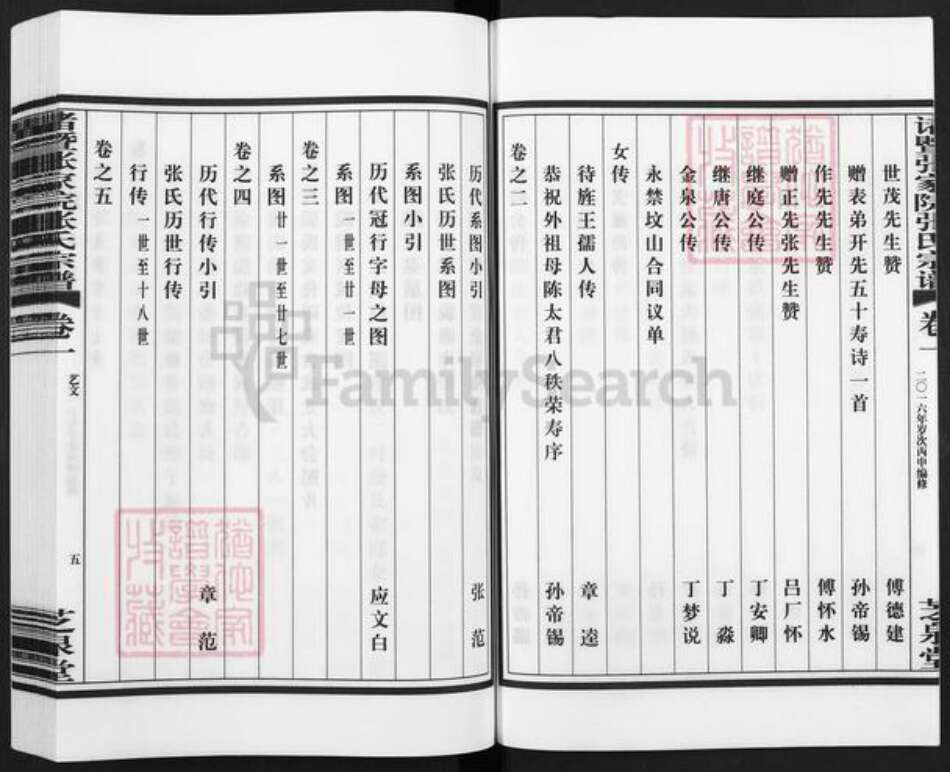 诸暨张家院张氏宗谱 卷一 二〇一六年岁次丙申编修 芝泉堂
世茂先生赞 傅德建
赠表弟开先五十寿诗一首 孙帝锡
作先先生赞 傅怀水
赠正先张先生赞 吕厂怀
继庭公传 丁安卿
继唐公传 丁淼
金泉公传 丁梦说
永禁坟山合同议单
女传
待旌王孺人传 章逵
恭祝外祖母陈太君八秩荣寿序 孙帝锡
卷之二
历代系图小引 张范
张氏历世系图
系图小引
历代冠行字母之图 应文白
系图 一世至廿一世
卷之三
系图 廿一世至廿七世
卷之四
历代行传小引 章范
张氏历世行传
行传 一世至十八世
卷之五
诸暨张家院张氏宗谱 卷一 艺文 五 芝泉堂
FamilySearch